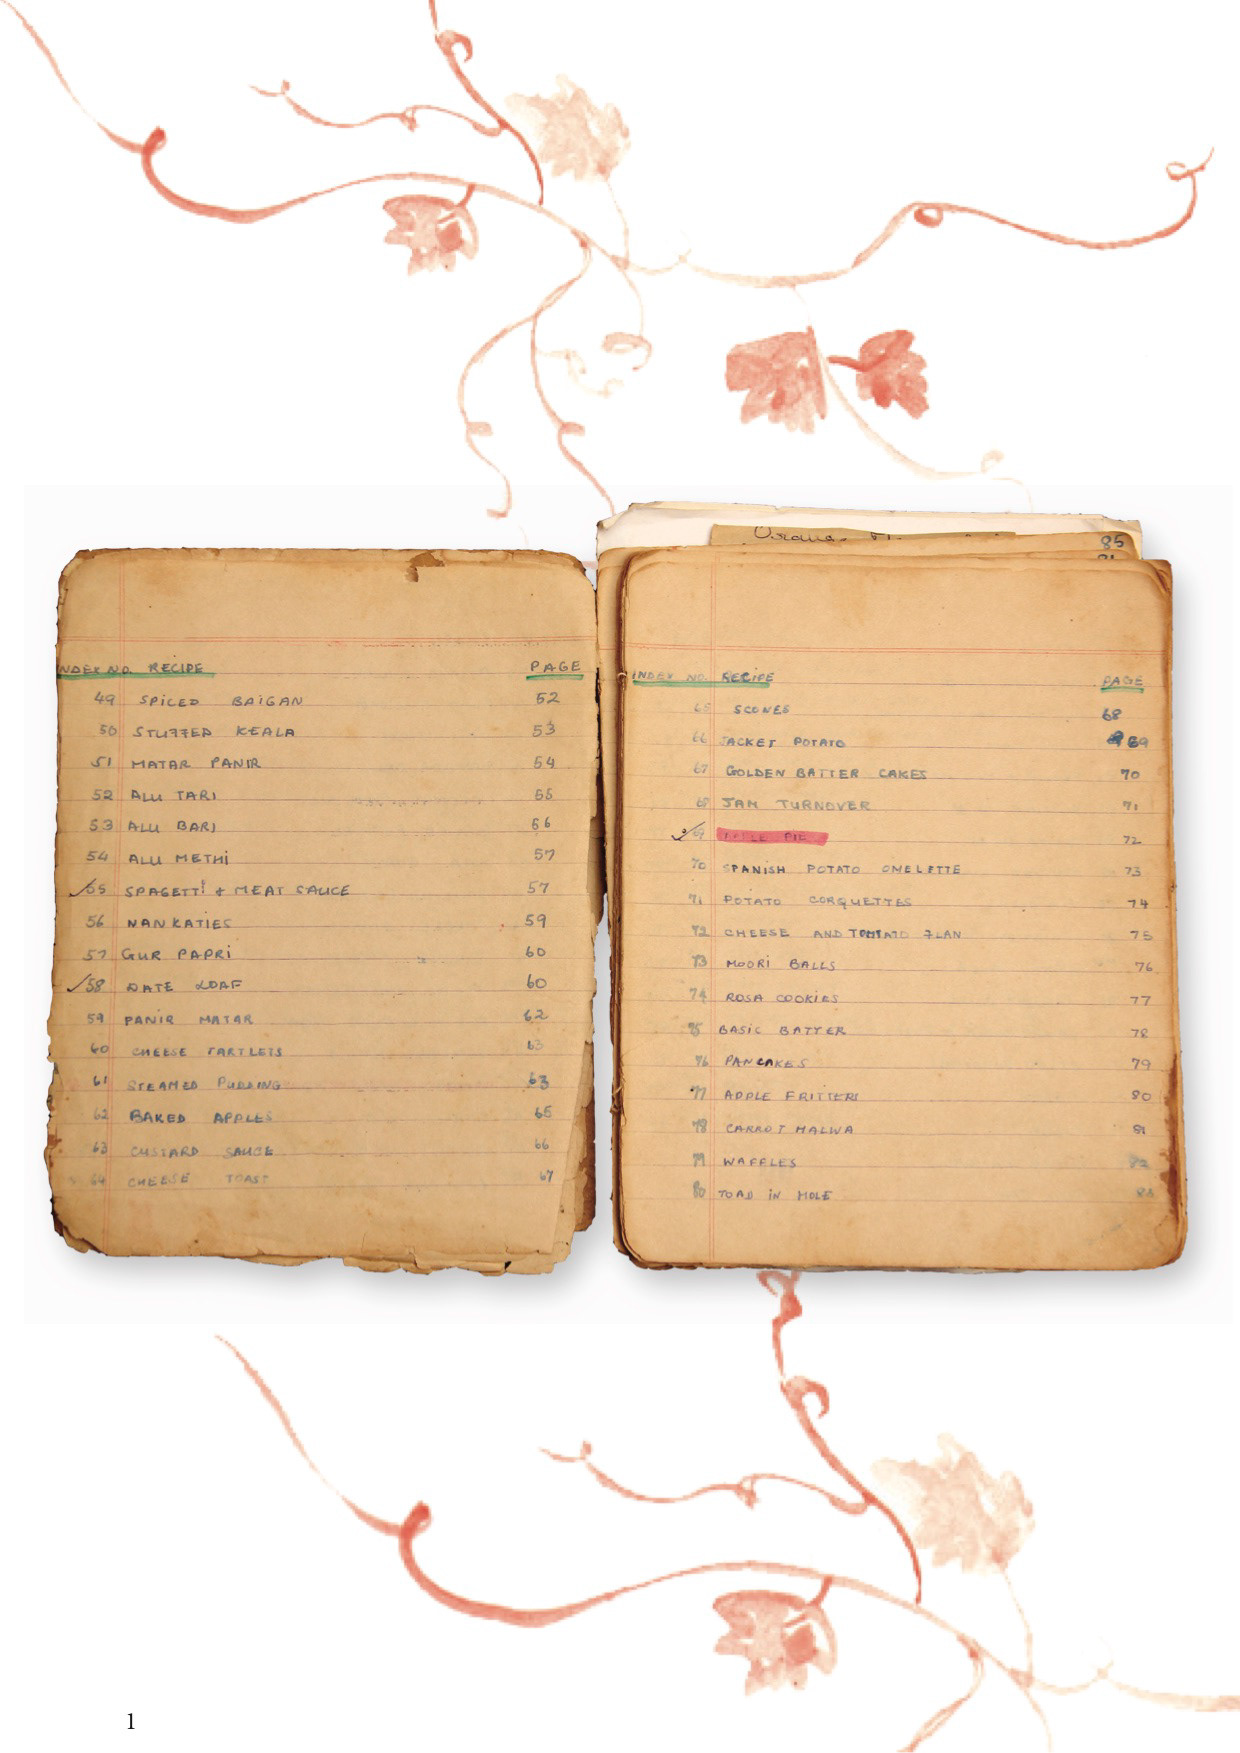 85
INDEX NO. RECIPE PAGE
49 SPICED BAIGAN 52
50 STUFFED KEALA 53
51 MATAR PANIR 54
52 ALU TARI 55
53 ALU BARI 56
54 ALU METHI 57
55 SPAGETTI + MEAT SAUCE 57
56 NANKATIES 59
57 GUR PAPRI 60
58 DATE LOAF 60
59 PANIR MATAR 62
60 CHEESE TARTLETS 63
61 STEAMED PUDDING 63
62 BAKED APPLES 65
63 CUSTARD SAUCE 66
64 CHEESE TOAST 67
INDEX NO. RECIPE PAGE
65 SCONES 68
66 JACKET POTATO 69
67 GOLDEN BATTER CAKES 70
68 JAM TURNOVER 71
69 PIE 72
70 SPANISH POTATO OMELETTE 73
71 POTATO CORQUETTES 74
72 CHEESE AND TOMTATO FLAN 75
73 MOORI BALLS 76
74 ROSA COOKIES 77
75 BASIC BATTER 78
76 PANCAKES 79
77 APPLE FRITTERS 80
78 CARROT HALWA 81
79 WAFFLES 82
80 TOAD IN HOLE 83
1